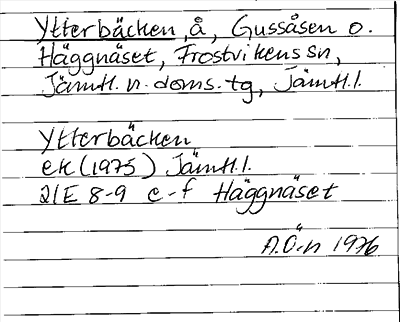 Ytterbäcken, å, Gussåsen o.
Häggnäset, Frostvikens sn,
Jämtl. n. doms. tg, Jämtl.l.
Ytterbäcken
ek (1975) Jämtl.l.
21E 8-9 e-f Häggnäset
A.Ö-n 1976